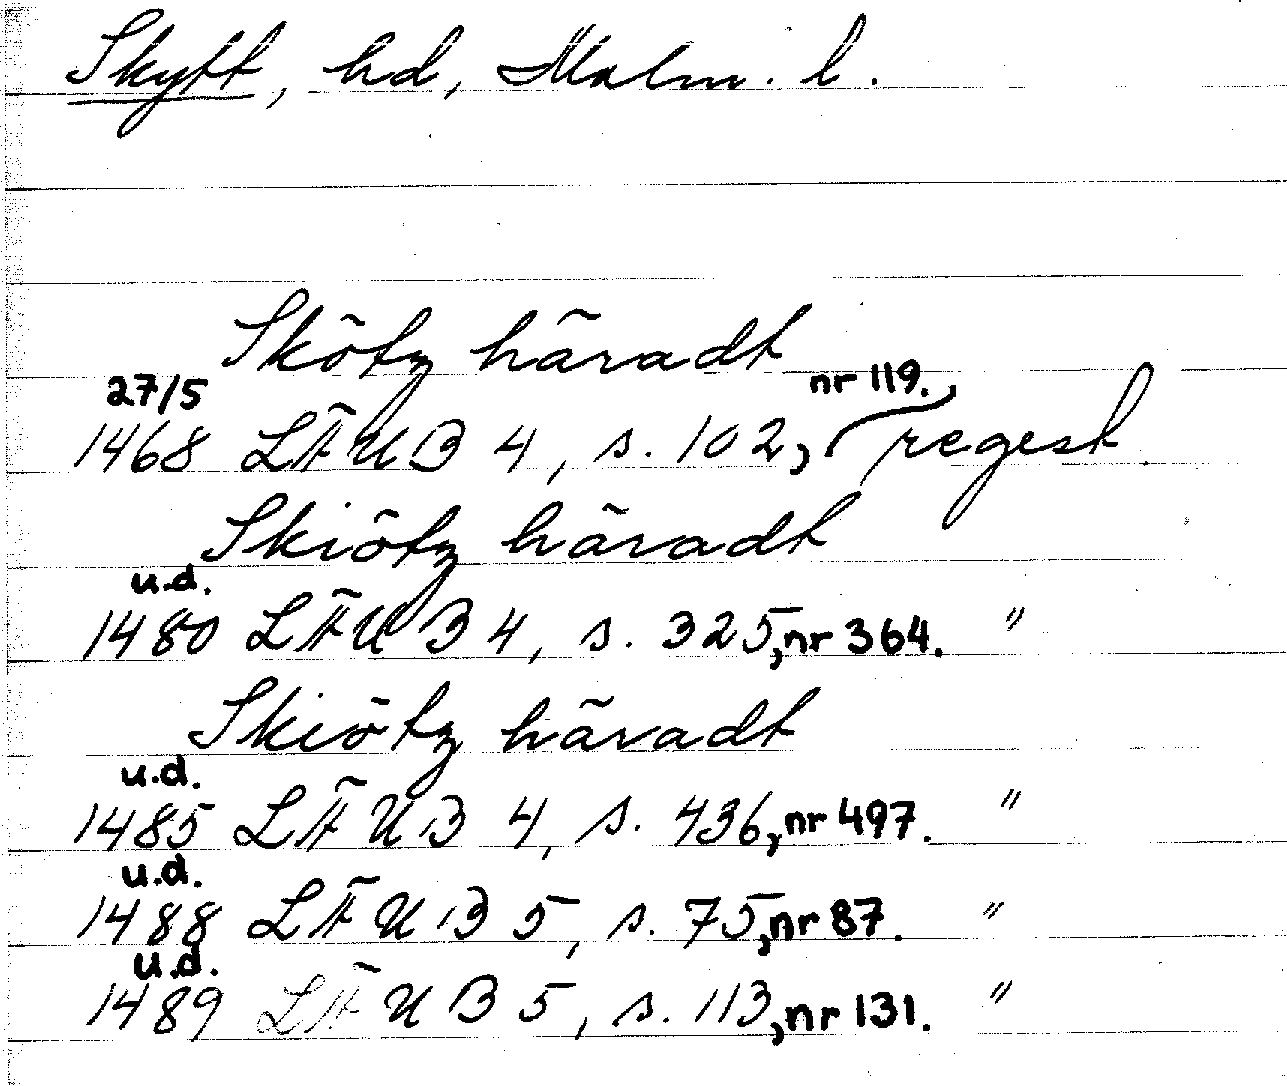 Skytt, hd, Malm. l.
Skötz häradt
27/5 nr 119.
1468 LÄUB 4, s. 102, regest.
Skiötz häradt
u.d.
1480 LÄUB 4, s. 325, nr 364. "
Skiötz häradt
u.d.
1485 LÄUB 4, s. 436, nr 497. "
u.d.
1488 LÄUB 5, s. 75, nr 87. "
u.d.
1489 LÄUB 5, s. 113, nr 131. "